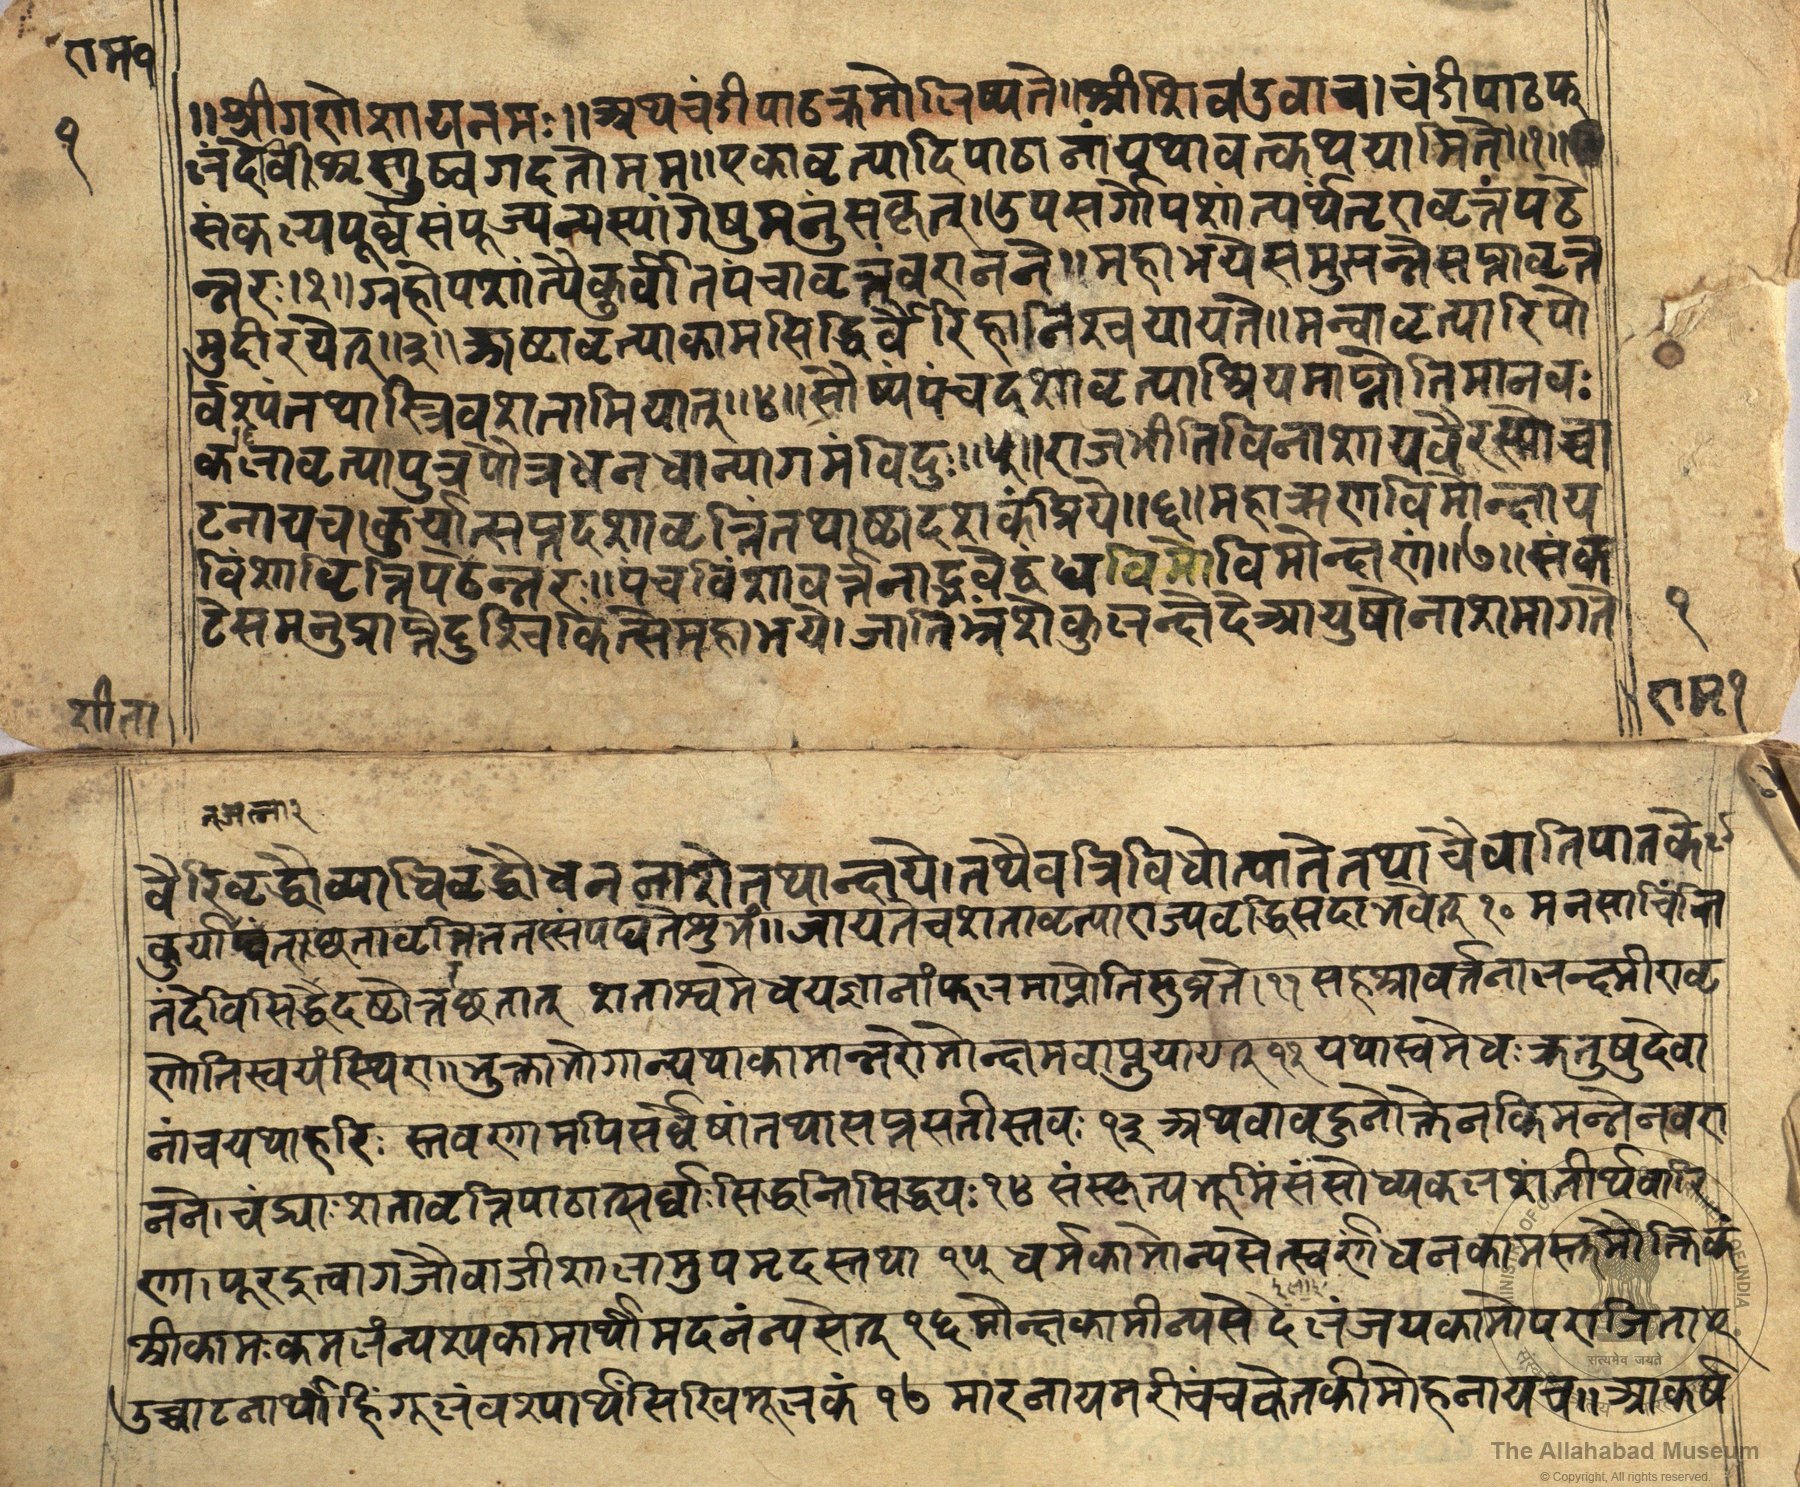 राम१
१
॥श्रीगणेशायनमः॥अथचंडीपाठक्रमोलिष्यते॥श्रीशिवउवाच।चंडीपाठफ
लंदेवीश्रस्णुष्वगदतोमम॥एकावृत्यादिपाठानांयथावत्कथयामिते॥१॥
संकल्यपूर्व्वसंपूज्यन्यस्यांगेषुमनुंसकृत्।उपसर्गोपशांत्यर्थंतृरावृत्तंपठे
न्नरः।२॥ग्रहोपशांत्यैकुर्वीतपंचावृत्तंवरानने॥महाभयेसमुत्पन्नेसप्तावृत्त
मुदीरयेत्॥३॥अष्टावृत्याकामसिद्धिर्वैरिहानिश्चयायते॥मन्वावृत्यारिपो
र्वश्यंतथास्त्रिवशतामियात्॥४॥सौष्यंपंचदशावृत्याश्रियमाप्नोतिमानवः
कलावृत्यापुत्रपौत्रधनधान्यागमंविदुः॥५॥राजभीतिविनाशायवैरस्योच्चा
टनायच।कुर्यात्सप्तदशावृत्तिंतथाष्टादशकंप्रिये॥६॥महात्रणविमोक्षाय
विंशावृत्तिपठेन्नरः॥पंचविंशावर्त्तनाद्भवेद्वंधविमोक्षणं॥७॥संक
टेसमनुप्राप्तेदुश्चिकित्सेमहाभये।जातिभ्रंशेकुलच्छेदेआयुषोनाशमागते
१
सीता
राम१
वैरिवृद्धौव्याधिवृद्धौधननाशेतथाक्षये।तथैवत्रिविधोत्पातेतथाचैवातिपातके
कुर्याद्यत्नाछतावृत्तिंततस्संपद्यतेशुभं॥जायतेचशतावृत्याराज्यवृद्धिसदाभवेत्१०मनसाचिंति
तंदेविसिद्धेदष्टोत्तर्छतात् शताश्वमेधयज्ञानांफलमाप्नोतिसुव्रते।११सहस्रावर्त्तनालक्ष्मीरावृ
णोतिस्वयंस्थिरा॥भुक्ताभोगान्यथाकामान्नरोमोक्षमवाप्नुयात् १२यथास्वमेधःक्रतुषुदेवा
नांचयथाहरिः स्तवणामपिसर्व्वेषांतथासप्तसतीस्तवः१३अथवावहुनोक्तेनकिमन्तेनवरा
नने।चंड्याःशतावृत्तिपाठात्सर्व्वाःसिद्ध्यन्तिसिद्धयः१४ संस्कृत्यभूमिंसंसोध्यकलशंतीर्थवारि
णा।पूरदुत्वागजौवाजीशालामुपमृदस्तथा १५ धर्मकामोन्यसेत्स्वर्णंधनकामस्तमौक्तिकं
श्रीकामःकमलंन्यश्यकामार्थीमदनंन्यसेत् १६मोक्षकामीन्यसेदेलंजयकामोपराजिता
उच्चाटनार्थीहिंगूलंवश्यार्थंसिखिमूलकं १७ मारनायमरीचंचकेतकीमोहनायच॥आकर्ष
सत्यमेव जयते
The Allahabad Museum
© Copyright, All rights reserved.